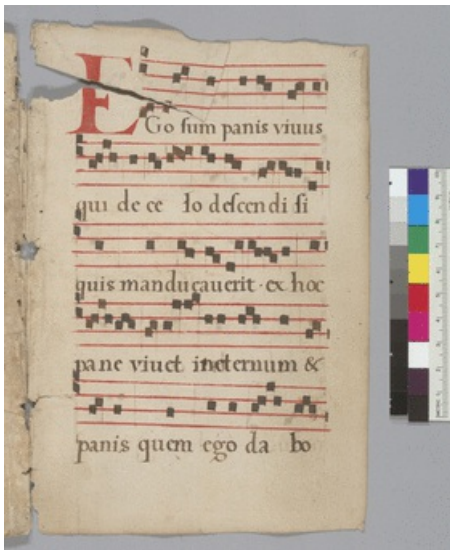 EGo sum panis viuus
qui de ce lo descendi si
quis manducauerit · ex hoc
pane viuet ineternum &
panis quem ego da bo